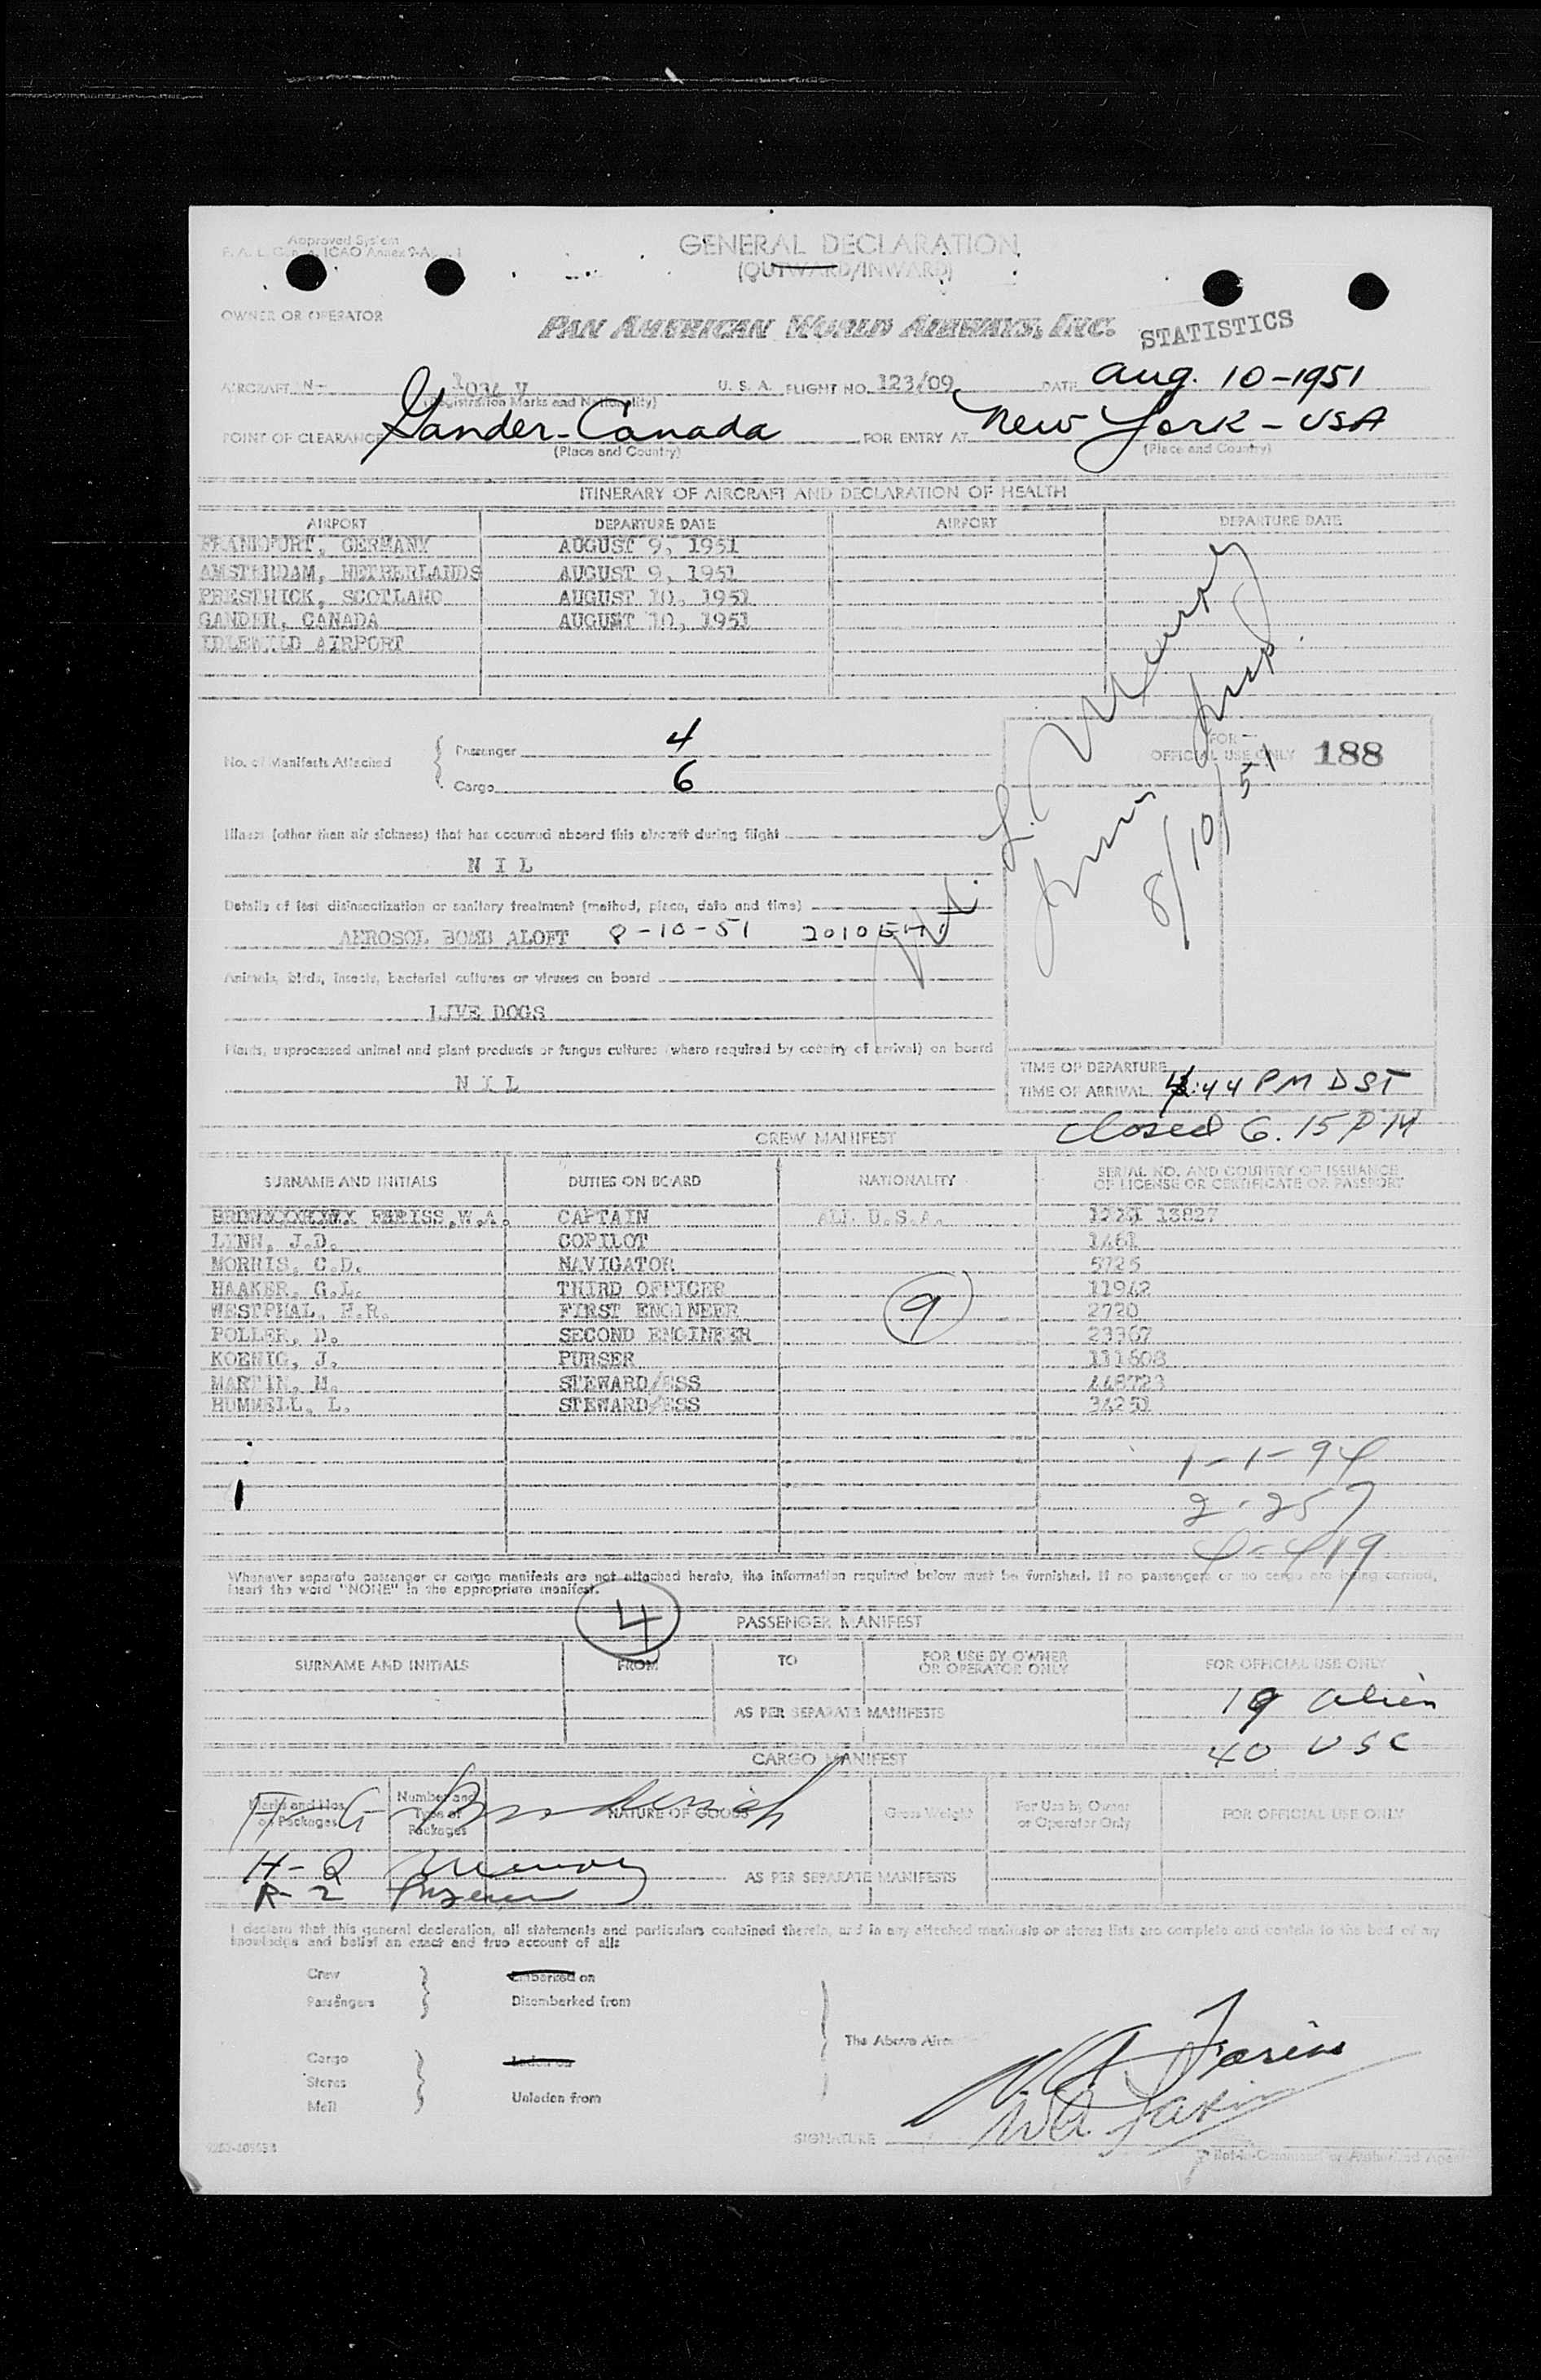 Approved System
GENERAL DECLARATION
(OUTWARD/INWARD)
OWNER OR OPERATOR
PAN AMERICAN WORLD AIRWAYS, INC.
STATISTICS
AIRCRAFT N- 1034 V U. S. A. FLIGHT NO. 123/09 DATE Aug. 10-1951
(Registration Marks and Nationality)
POINT OF CLEARANCE Gander-Canada FOR ENTRY AT New York-USA
(Place and Country) (Place and Country)
ITINERARY OF AIRCRAFT AND DECLARATION OF HEALTH
AIRPORT DEPARTURE DATE AIRPORT DEPARTURE DATE
FRANKFURT, GERMANY AUGUST 9, 1951
AMSTERDAM, NETHERLANDS AUGUST 9, 1951
PRESTWICK, SCOTLAND AUGUST 10, 1951
GANDER, CANADA AUGUST 10, 1951
IDLEWILD AIRPORT
No. of Manifests Attached
Passenger 4
Cargo 6
FOR OFFICIAL USE ONLY 188
8/10/51
Illness (other than air sickness) that has occurred aboard this aircraft during flight
N I L
Details of last disinsectization or sanitary treatment (method, place, date and time)
AEROSOL BOMB ALOFT 8-10-51 2010
Animals, birds, insects, bacterial cultures or viruses on board
LIVE DOGS
Plants, unprocessed animal and plant products or fungus cultures (where required by country of arrival) on board
N I L
TIME OF DEPARTURE
TIME OF ARRIVAL 4:44 PM DST
Closed 6.15 PM
CREW MANIFEST
SURNAME AND INITIALS DUTIES ON BOARD NATIONALITY SERIAL NO. AND COUNTRY OF ISSUANCE
OF LICENSE OR CERTIFICATE OR PASSPORT
FERISS, W.A. CAPTAIN ALL U.S.A. 13827
LYNN, J.D. COPILOT 1461
MORRIS, C.D. NAVIGATOR 5725
HAAKER, G.L. THIRD OFFICER 11942
WESTPHAL, H.R. FIRST ENGINEER 2720
POLLER, D. SECOND ENGINEER 23367
KOENIG, J. PURSER 111608
MARTIN, M. STEWARD/ESS 448723
HUMMELL, L. STEWARD/ESS 34251
9
1-1-94
2-257
Whenever separate passenger or cargo manifests are not attached hereto, the information required below must be furnished. If no passengers or no cargo are being carried,
insert the word "NONE" in the appropriate manifest.
4
PASSENGER MANIFEST
SURNAME AND INITIALS FROM TO FOR USE BY OWNER OR OPERATOR ONLY FOR OFFICIAL USE ONLY
AS PER SEPARATE MANIFESTS
19 alien
40 USC
CARGO MANIFEST
Marks and Nos. on Packages Number and Type of Packages NATURE OF GOODS Gross Weight For Use by Owner or Operator Only FOR OFFICIAL USE ONLY
H-Q
R-2
AS PER SEPARATE MANIFESTS
I declare that this general declaration, all statements and particulars contained therein, and in any attached manifests or stores lists are complete and contain to the best of my
knowledge and belief an exact and true account of all:
Crew Embarked on
Passengers Disembarked from
The Above Airc
Cargo Laden on
Stores
Mail Unladen from
SIGNATURE
Pilot-in-Command or Authorized Agent